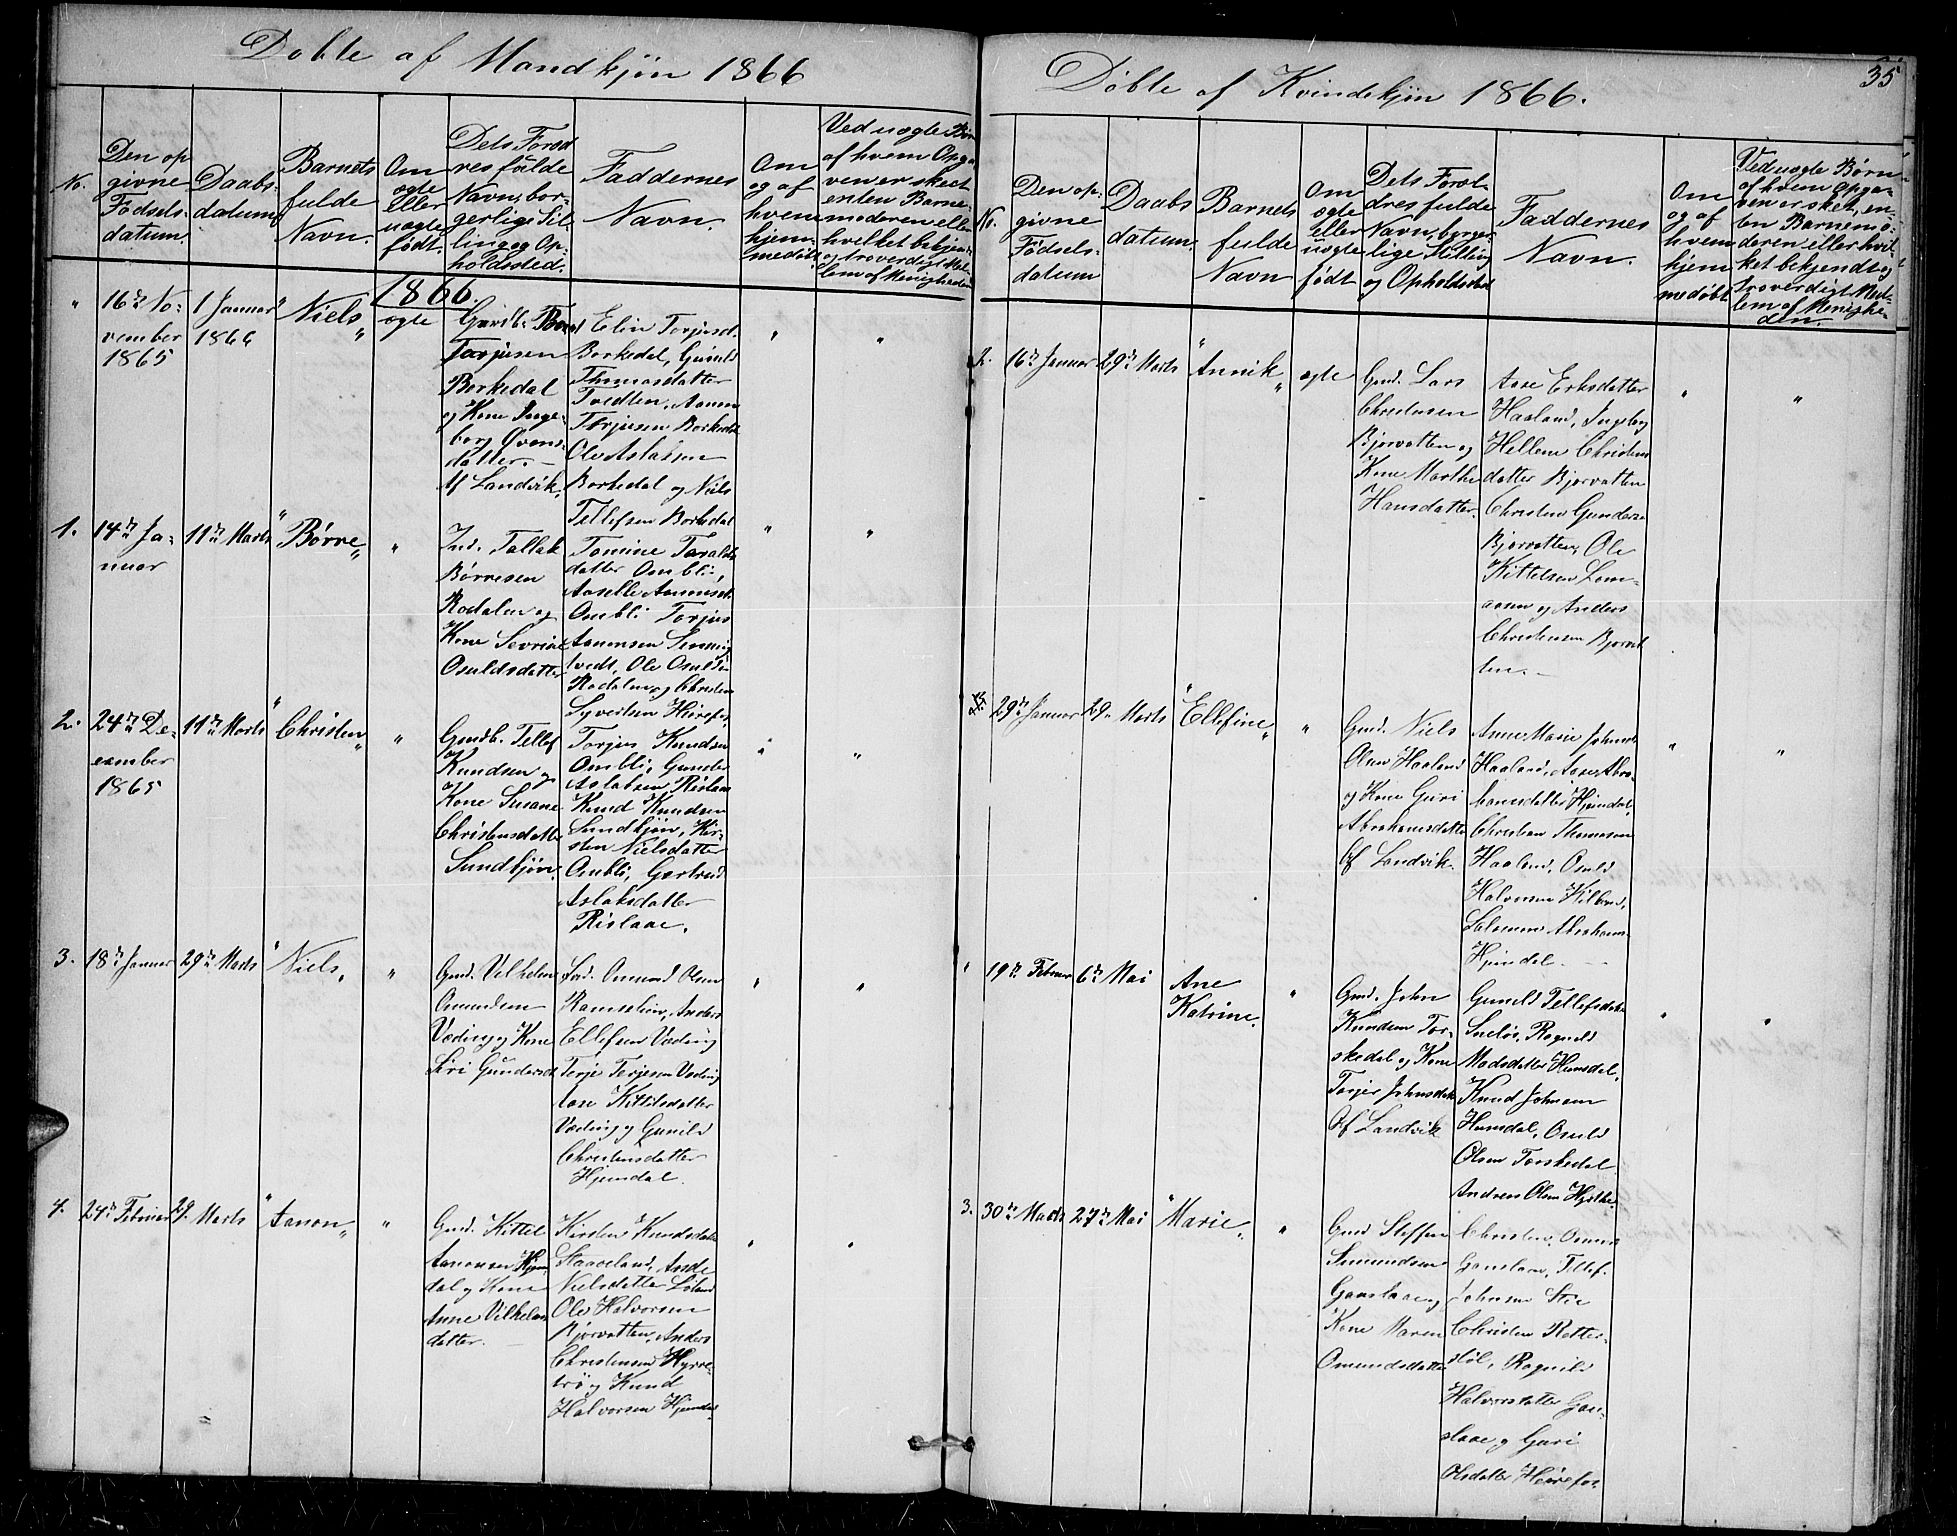 Døbte af Mandkjøn 1866
No.
Den op
givne
Fødsels-
datum.
Daabs-
datum
Barnets
fulde
Navn.
Om
ægte
eller
uægte
født.
Dets Foræl
dres fulde
Navn, bor-
gerlige Stil
ling og Op-
holdssted.
Faddernes
Navn.
Om
og af
hvem
hjem-
medøbt
Ved uægte Børn
af hvem Opga
ven er skeet
enten Barne-
moderen eller
hvilket bekjendt
og troverdigt Med
lem af Menigheden
1866.
"
16de No-
vember
1865
1 Januar
1866
"Niels"
ægte
Gaardb.
Torjusen
Borkedal
og Kone Inge-
borg
datter.-
Af Landvik.
Elin Torjusd.
Borkedal, Gunild
Thomasdatter
Tvedten, Aanon
Torjusen Borkedal
Ole Aslaksen
Borkedal og Niels
Tellefsen Borkedal
"
"
1.
14de Ja-
nuar
11te Marts
"Børre"
"
Ind. Tallak
Børresen
Rodalen og
Kone Sevrine
Osuldsdatter
Tomine Taralds
datter Ombli,
Aaselle Aanonsd.
Ombli Torjus
Aanonsen
tvedt, Ole Osulds
Rodalen og Christen
Syvertsen Heirefos
"
"
2.
24de De-
cember
1865
11te Marts
"Christen"
"
Gaardb. Tellef
Knudsen og
Kone Susane
Christensdatter
Sundkjøn.
Torjus Knudsen
Ombli, Gunder
Aslaksen Rislaa
Knud Knudsen
Sundkjøn, Kir-
sten Nielsdatter
Ombli, Gertrud
Aslaksdatter
Rislaae.
"
"
3.
18de Januar
29de Marts
"Niels"
"
Gmd. Vilhelm
Omundsen
Væding og Kone
Siri Gundersd.
Ind. Omund Olsen
Ramsalien, Anders
Ellefsen Væding
Terje Terjesen Væding
Aase Kittilsdatter
Væding og Gunild
Christensdatter
Hjemdal.
"
"
4.
24de Februar
29. Marts
"Aanon"
"
Gmd. Kittel
Aanonsen Hjem-
dal og Kone
Anne Vilhelms
datter.
Kirsten Knudsdatter
Staaveland, Ande
Nielsdatter
Ole Halvorsen
Bjorvatten, Anders
Christensen Hyrre-
trø og Knud
Halvorsen Hjemdal
"
"
Døbte af Kvindekjøn 1866.
35
No.
Den op-
givne
Fødsels-
datum
Daabs
datum
Barnets
fulde
Navn
Om
ægte
eller
uægte
født
Dets Foræl-
dres fulde
Navn, borger-
lige Stilling
og Opholdssted
Faddernes
Navn.
Om
og af
hvem
hjem
medøbt
Ved uægte Børn
af hvem Opga-
ven er sket, en-
ten Barnemo-
deren eller hvil-
ket bekjendt og
troverdigt Med-
lem af Menighe-
den.
2.
16de Januar
29de Marts
"Annik"
ægte
Gmd. Lars
Christensen
Bjorvatten og
Kone Marthe
Hansdatter.
Aase Eriksdatter
Haaland, Ingeborg
Hellene Christens
datter Bjorvatten
Christen Gunders.
Bjorvatten, Ole
Kittelsen Lom-
aasen og Anders
Christensen Bjorvat
ten.-
"
"
29de Januar
29. Marts
"Ellefine"
"
Gmd. Niels
Olsen Haaland
og Kone Guri
Abrahamsdatter
Af Landvik.
Anne Marie Johnsd.
Haaland, Aase Abra-
hamsdatter Hjemdal,
Christian Thomasen
Haaland, Osuld
Halvorsen Kilbrud,
Salomon Abrahams.
Hjemdal.
"
"
"
19de Februar
6te Mai
Ane
Katrine.
"
Gmd. John
Knudsen Tor-
skedal og Kone
Torjer Johnsdatter
Af Landvik
Gunild Tellefsdatter
Sneløs, Ragnild
Madsdatter Humsdal,
Knud Johnsen
Humsdal, Osuld
Olsen Torskedal
Andreas Olsen
"
"
3.
30te Marts
27de Mai
"Marie"
"
Gmd Steffen
Simundsen
Gaaslaae og
Kone Maren
Omundsdatter
Christen Omunds
Gaaslaae, Tellef
Johnsen Stie
Christen Retter-
støl, Ragnild
Halvorsdatter Gaa-
slaae og Guri
Olsdatter Heirefos